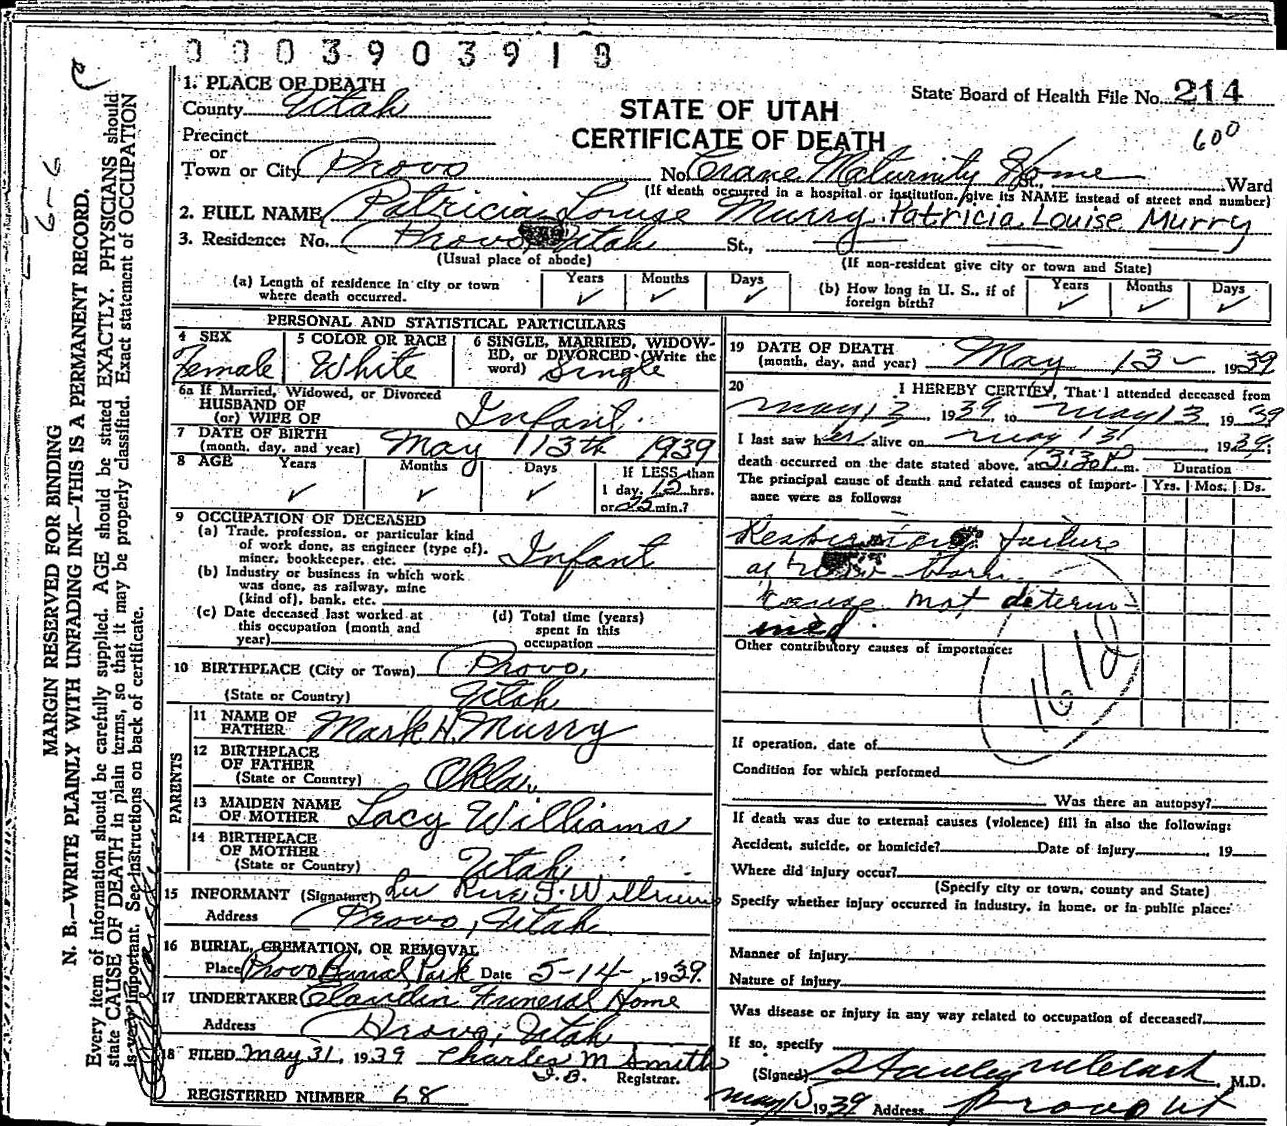 0003903918
1. PLACE OF DEATH
County Utah
Precinct
or
Town or City Provo
STATE OF UTAH
CERTIFICATE OF DEATH
State Board of Health File No. 214
600
No. Crane Maturnity Home St., Ward
(If death occurred in a hospital or institution, give its NAME instead of street and number)
2. FULL NAME Patricia Louise Murry Patricia Louise Murry
3. Residence: No. Provo, Utah St.,
(Usual place of abode) (If non-resident give city or town and State)
(a) Length of residence in city or town where death occurred. Years ✓ Months ✓ Days ✓
(b) How long in U. S., if of foreign birth? Years ✓ Months ✓ Days ✓
PERSONAL AND STATISTICAL PARTICULARS
4 SEX Female
5 COLOR OR RACE White
6 SINGLE, MARRIED, WIDOW-
ED, or DIVORCED (Write the
word) Single
6a If Married, Widowed, or Divorced
HUSBAND OF
(or) WIFE OF Infant
7 DATE OF BIRTH
(month, day, and year) May 13th 1939
8 AGE Years ✓ Months ✓ Days ✓
If LESS than
1 day, 15 hrs.
or 25 min.?
9 OCCUPATION OF DECEASED
(a) Trade, profession, or particular kind
of work done, as engineer (type of),
miner, bookkeeper, etc. Infant
(b) Industry or business in which work
was done, as railway, mine
(kind of), bank, etc.
(c) Date deceased last worked at
this occupation (month and
year)
(d) Total time (years)
spent in this
occupation
10 BIRTHPLACE (City or Town) Provo,
(State or Country) Utah
PARENTS
11 NAME OF
FATHER Mark H. Murry
12 BIRTHPLACE
OF FATHER
(State or Country) Okla.
13 MAIDEN NAME
OF MOTHER Lacy Williams
14 BIRTHPLACE
OF MOTHER
(State or Country) Utah
15 INFORMANT (Signature)
Address Provo, Utah
16 BURIAL, CREMATION, OR REMOVAL
Place Provo Burial Park Date 5-14-, 1939.
17 UNDERTAKER Claudin Funeral Home
Address Provo, Utah
18 FILED May 31, 1939 Charles M Smith
Registrar.
REGISTERED NUMBER 68
19 DATE OF DEATH
(month, day, and year) May 13- 1939
20 I HEREBY CERTIFY, That I attended deceased from
may 13 1939, to may 13, 1939
I last saw her alive on may 13 1939;
death occurred on the date stated above, at 3:30 P. m. Duration
The principal cause of death and related causes of import-
ance were as follows: Yrs. Mos. Ds.
Respiratory failure
of new born.
Cause not determ-
ined.
Other contributory causes of importance:
1612
If operation, date of
Condition for which performed
Was there an autopsy?
If death was due to external causes (violence) fill in also the following:
Accident, suicide, or homicide? Date of injury , 19
Where did injury occur?
(Specify city or town, county and State)
Specify whether injury occurred in industry, in home, or in public place:
Manner of injury
Nature of injury
Was disease or injury in any way related to occupation of deceased?
If so, specify
(Signed) Stanley M Clark, M.D.
may 15 1939 Address Provo Ut
6-6
MARGIN RESERVED FOR BINDING
N. B.—WRITE PLAINLY WITH UNFADING INK—THIS IS A PERMANENT RECORD.
Every item of information should be carefully supplied. AGE should be stated EXACTLY. PHYSICIANS should
state CAUSE OF DEATH in plain terms, so that it may be properly classified. Exact statement of OCCUPATION
is very important. See instructions on back of certificate.